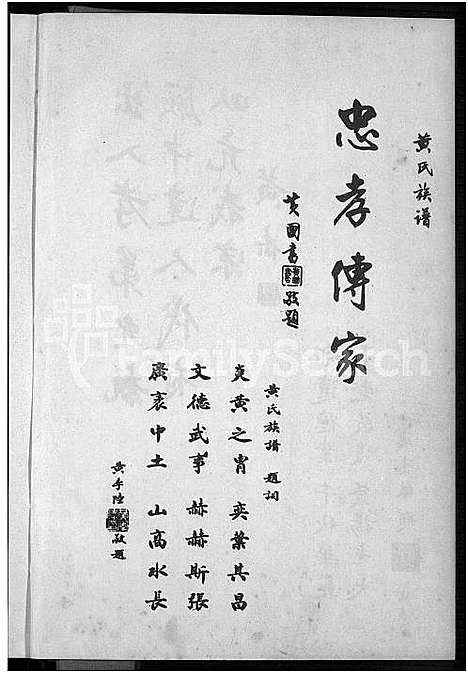 黃氏族譜
忠孝傳家
黃國書 敬題
黃氏族譜 題詞
炎黃之冑 奕葉其昌
文德武事 赫赫斯張
廣袤中土 山高水長
黃季陸 敬題
FamilySearch